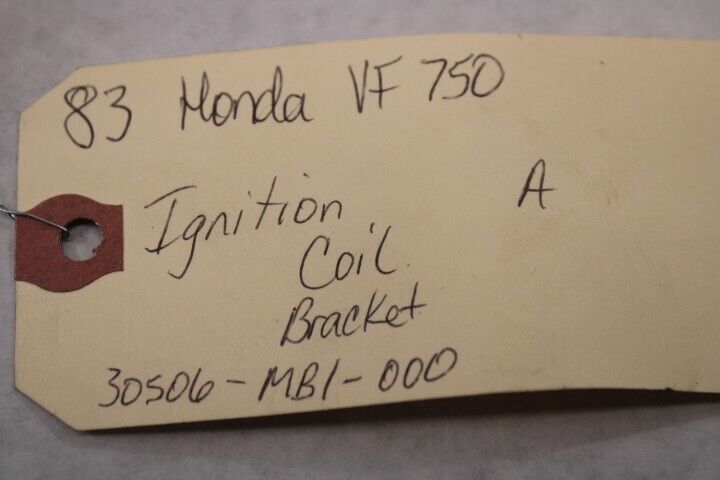 83 Honda VF 750
Ignition A
Coil
Bracket
30506-MB1-000